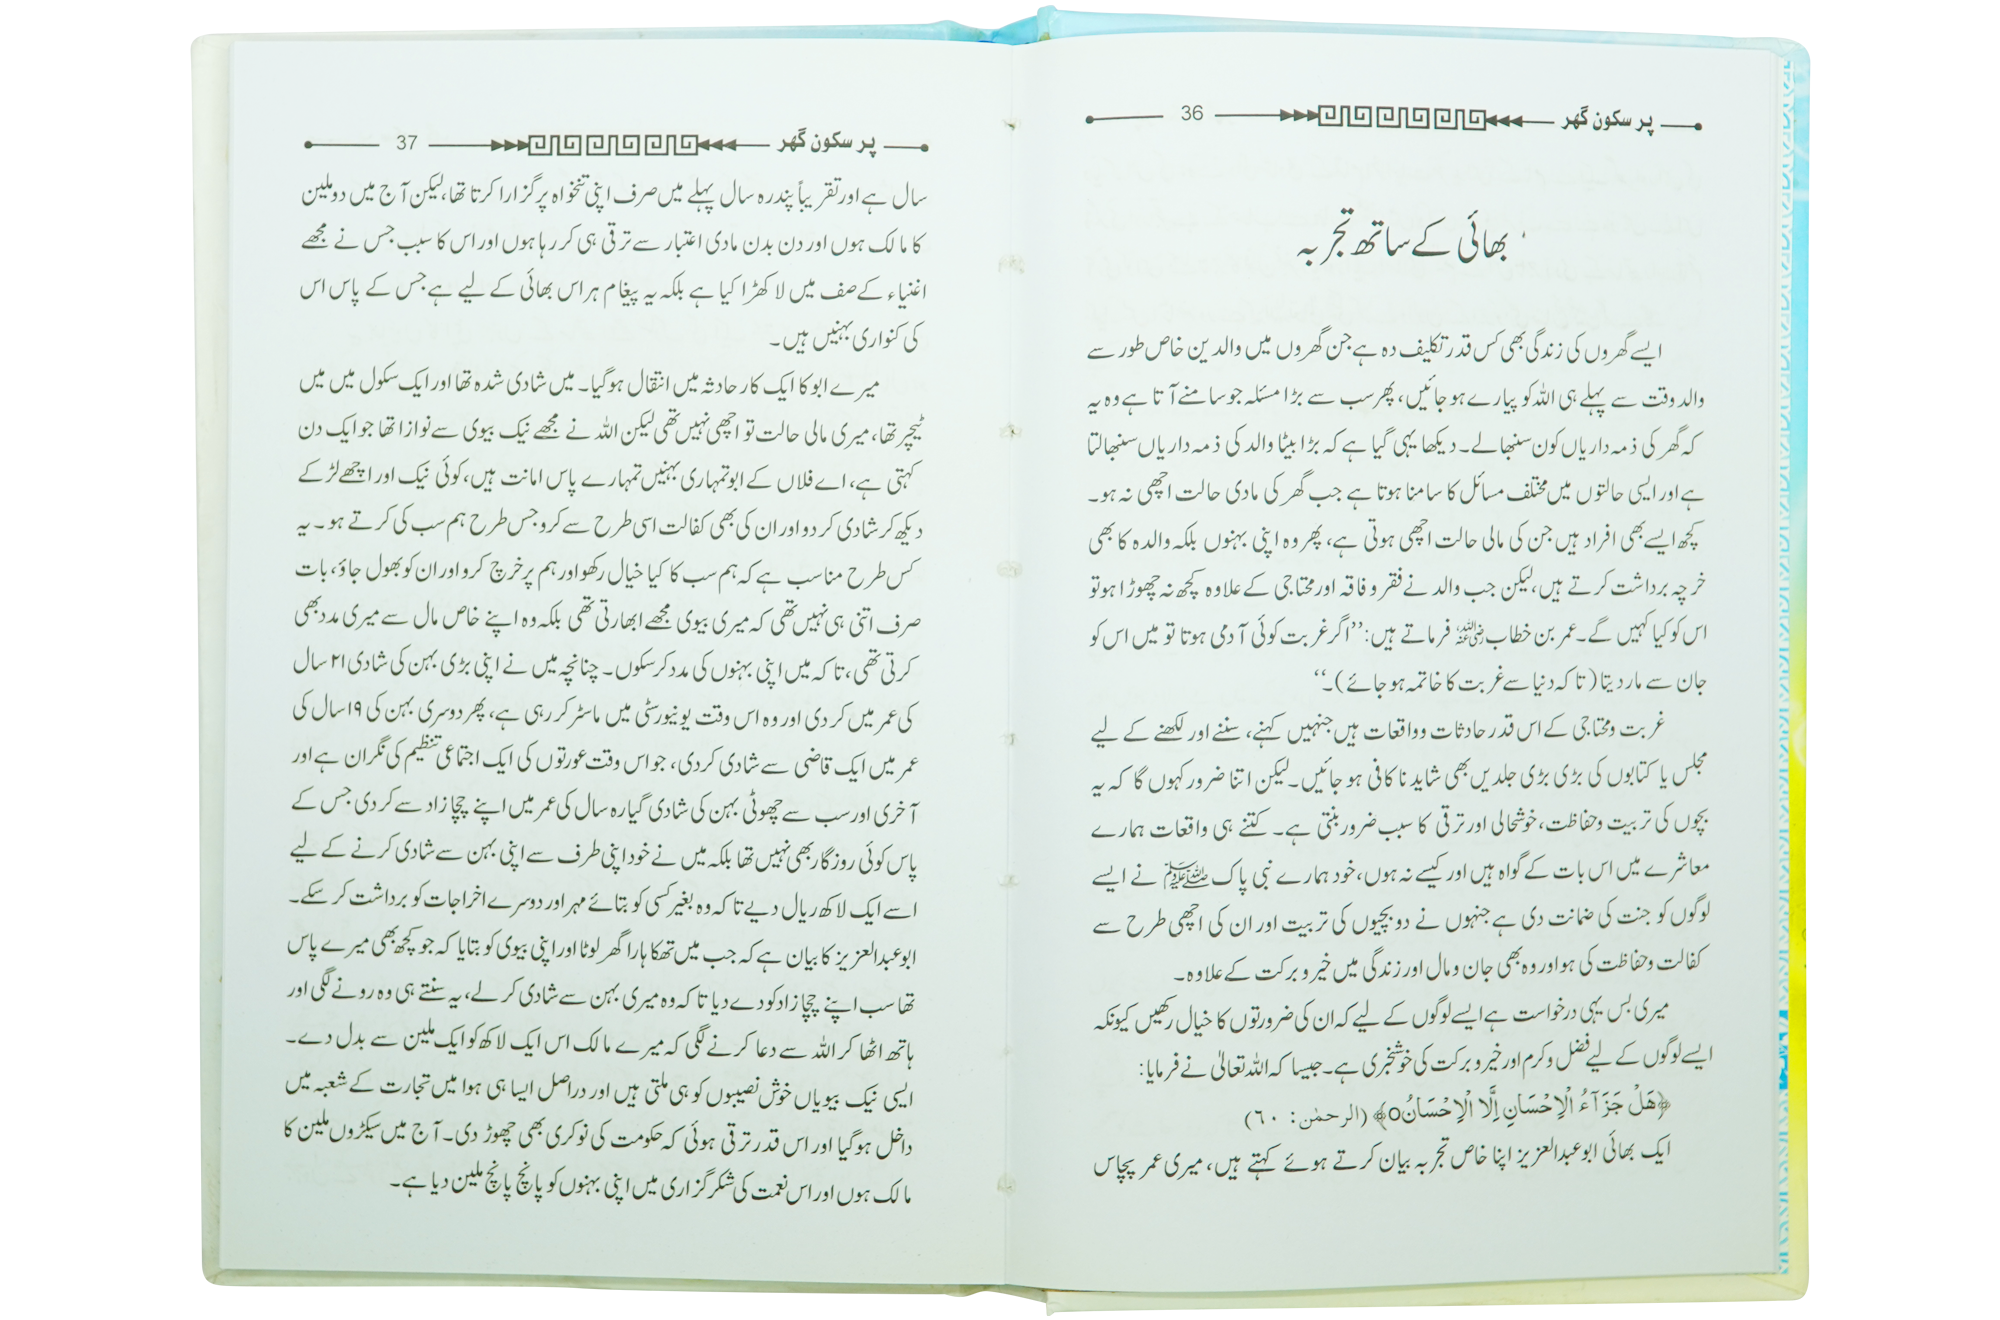 پر سکون گھر 36
بھائی کے ساتھ تجربہ
ایسے گھروں کی زندگی بھی کس قدر تکلیف دہ ہے جن گھروں میں والدین خاص طور سے
والد وقت سے پہلے ہی اللہ کو پیارے ہو جائیں، پھر سب سے بڑا مسئلہ جو سامنے آتا ہے وہ یہ
کہ گھر کی ذمہ داریاں کون سنبھالے۔ دیکھا یہی گیا ہے کہ بڑا بیٹا والد کی ذمہ داریاں سنبھالتا
ہے اور ایسی حالتوں میں مختلف مسائل کا سامنا ہوتا ہے جب گھر کی مادی حالت اچھی نہ ہو۔
کچھ ایسے بھی افراد ہیں جن کی مالی حالت اچھی ہوتی ہے، پھر وہ اپنی بہنوں بلکہ والدہ کا بھی
خرچہ برداشت کرتے ہیں، لیکن جب والد نے فقر و فاقہ اور محتاجی کے علاوہ کچھ نہ چھوڑا ہو تو
اس کو کیا کہیں گے۔ عمر بن خطاب رضی اللہ عنہ فرماتے ہیں: ’’اگر غربت کوئی آدمی ہوتا تو میں اس کو
جان سے مار دیتا (تاکہ دنیا سے غربت کا خاتمہ ہو جائے)۔‘‘
غربت و محتاجی کے اس قدر حادثات و واقعات ہیں جنہیں کہنے، سننے اور لکھنے کے لیے
مجلس یا کتابوں کی بڑی بڑی جلدیں بھی شاید ناکافی ہو جائیں۔ لیکن اتنا ضرور کہوں گا کہ یہ
بچوں کی تربیت و حفاظت، خوشحالی اور ترقی کا سبب ضرور بنتی ہے۔ کتنے ہی واقعات ہمارے
معاشرے میں اس بات کے گواہ ہیں اور کیسے نہ ہوں، خود ہمارے نبی پاک ﷺ نے ایسے
لوگوں کو جنت کی ضمانت دی ہے جنہوں نے دو بچیوں کی تربیت اور ان کی اچھی طرح سے
کفالت و حفاظت کی ہو اور وہ بھی جان و مال اور زندگی میں خیر و برکت کے علاوہ۔
میری بس یہی درخواست ہے ایسے لوگوں کے لیے کہ ان کی ضرورتوں کا خیال رکھیں کیونکہ
ایسے لوگوں کے لیے فضل و کرم اور خیر و برکت کی خوشخبری ہے۔ جیسا کہ اللہ تعالیٰ نے فرمایا:
﴿هَلْ جَزَآءُ الْاِحْسَانِ اِلَّا الْاِحْسَانُo﴾ (الرحمٰن: ٦٠)
ایک بھائی ابو عبدالعزیز اپنا خاص تجربہ بیان کرتے ہوئے کہتے ہیں، میری عمر پچاس
پر سکون گھر 37
سال ہے اور تقریباً پندرہ سال پہلے میں صرف اپنی تنخواہ پر گزارا کرتا تھا، لیکن آج میں دو ملین
کا مالک ہوں اور دن بدن مادی اعتبار سے ترقی ہی کر رہا ہوں اور اس کا سبب جس نے مجھے
اغنیاء کے صف میں لا کھڑا کیا ہے بلکہ یہ پیغام ہر اس بھائی کے لیے ہے جس کے پاس اس
کی کنواری بہنیں ہیں۔
میرے ابو کا ایک کار حادثہ میں انتقال ہو گیا۔ میں شادی شدہ تھا اور ایک سکول میں میں
ٹیچر تھا، میری مالی حالت تو اچھی نہیں تھی لیکن اللہ نے مجھے نیک بیوی سے نوازا تھا جو ایک دن
کہتی ہے، اے فلاں کے ابو تمہاری بہنیں تمہارے پاس امانت ہیں، کوئی نیک اور اچھے لڑکے
دیکھ کر شادی کر دو اور ان کی بھی کفالت اسی طرح سے کرو جس طرح ہم سب کی کرتے ہو۔ یہ
کس طرح مناسب ہے کہ ہم سب کا کیا خیال رکھو اور ہم پر خرچ کرو اور ان کو بھول جاؤ، بات
صرف اتنی ہی نہیں تھی کہ میری بیوی مجھے ابھارتی تھی بلکہ وہ اپنے خاص مال سے میری مدد بھی
کرتی تھی، تاکہ میں اپنی بہنوں کی مدد کر سکوں۔ چنانچہ میں نے اپنی بڑی بہن کی شادی ۲۱ سال
کی عمر میں کر دی اور وہ اس وقت یونیورسٹی میں ماسٹر کر رہی ہے، پھر دوسری بہن کی ۱۹ سال کی
عمر میں ایک قاضی سے شادی کر دی، جو اس وقت عورتوں کی ایک اجتماعی تنظیم کی نگران ہے اور
آخری اور سب سے چھوٹی بہن کی شادی گیارہ سال کی عمر میں اپنے چچا زاد سے کر دی جس کے
پاس کوئی روزگار بھی نہیں تھا بلکہ میں نے خود اپنی طرف سے اپنی بہن سے شادی کرنے کے لیے
اسے ایک لاکھ ریال دیے تاکہ وہ بغیر کسی کو بتائے مہر اور دوسرے اخراجات کو برداشت کر سکے۔
ابو عبدالعزیز کا بیان ہے کہ جب میں تھکا ہارا گھر لوٹا اور اپنی بیوی کو بتایا کہ جو کچھ بھی میرے پاس
تھا سب اپنے چچا زاد کو دے دیا تاکہ وہ میری بہن سے شادی کر لے، یہ سنتے ہی وہ رونے لگی اور
ہاتھ اٹھا کر اللہ سے دعا کرنے لگی کہ میرے مالک اس ایک لاکھ کو ایک ملین سے بدل دے۔
ایسی نیک بیویاں خوش نصیبوں کو ہی ملتی ہیں اور دراصل ایسا ہی ہوا میں تجارت کے شعبہ میں
داخل ہو گیا اور اس قدر ترقی ہوئی کہ حکومت کی نوکری بھی چھوڑ دی۔ آج میں سیکڑوں ملین کا
مالک ہوں اور اس نعمت کی شکر گزاری میں اپنی بہنوں کو پانچ پانچ ملین دیا ہے۔